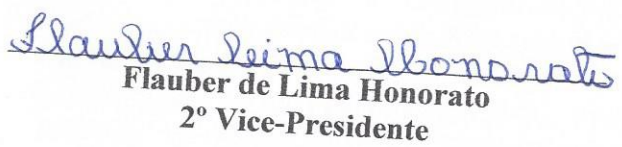 Flauber Leima Honorato
Flauber de Lima Honorato
2º Vice-Presidente